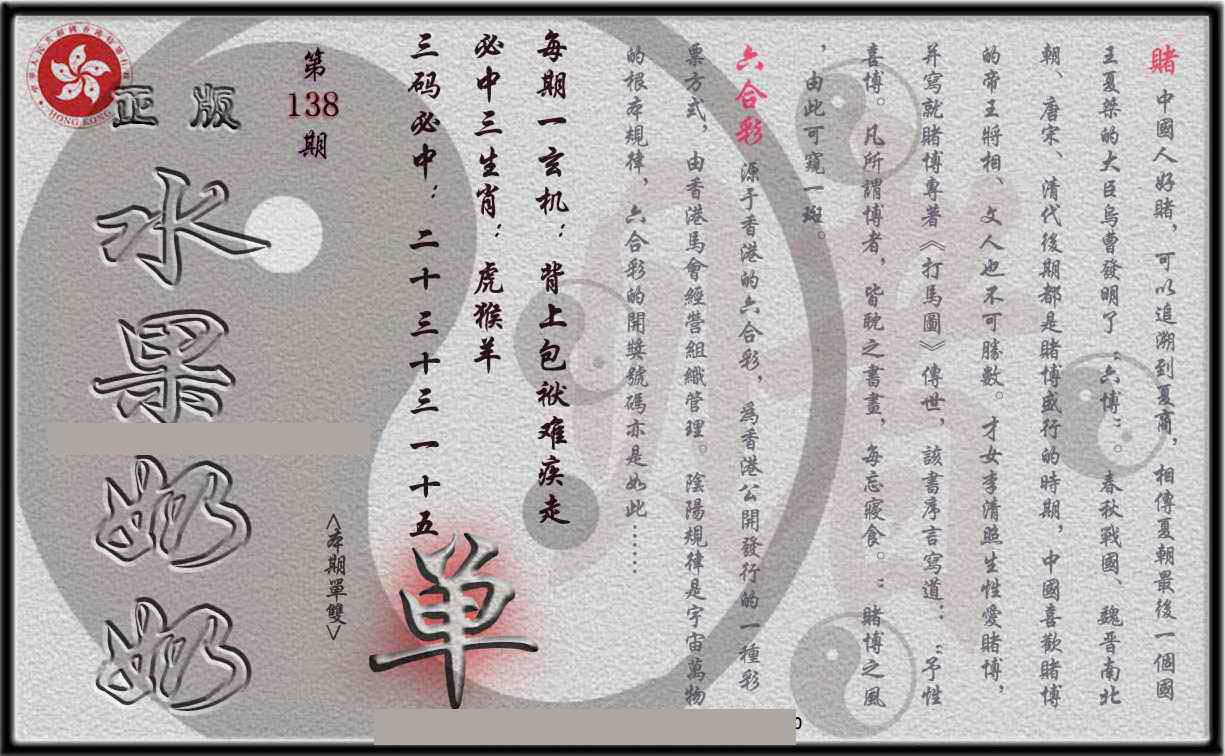 賭 中國人好賭，可以追溯到夏商，相傳夏朝最後一個國
王夏桀的大臣烏曹發明了“六博”。春秋戰國、魏晉南北
朝、唐宋、清代後期都是賭博盛行的時期，中國喜歡賭博
的帝王將相、文人也不可勝數。才女李清照生性愛賭博，
并寫就賭博專著《打馬圖》傳世，該書序言寫道：“予性
喜博。凡所謂博者，皆耽之書畫，每忘寢食。”賭博之風
，由此可窺一斑。
六合彩 源于香港的六合彩，為香港公開發行的一種彩
票方式，由香港馬會經營組織管理。陰陽規律是宇宙萬物
的根本規律，六合彩的開獎號碼亦是如此……
每期一玄机：背上包袱难疾走
必中三生肖：虎猴羊
三码必中：二十三十三一十五
单
<本期單雙>
第
138
期
HONG KONG
正版
水果奶奶